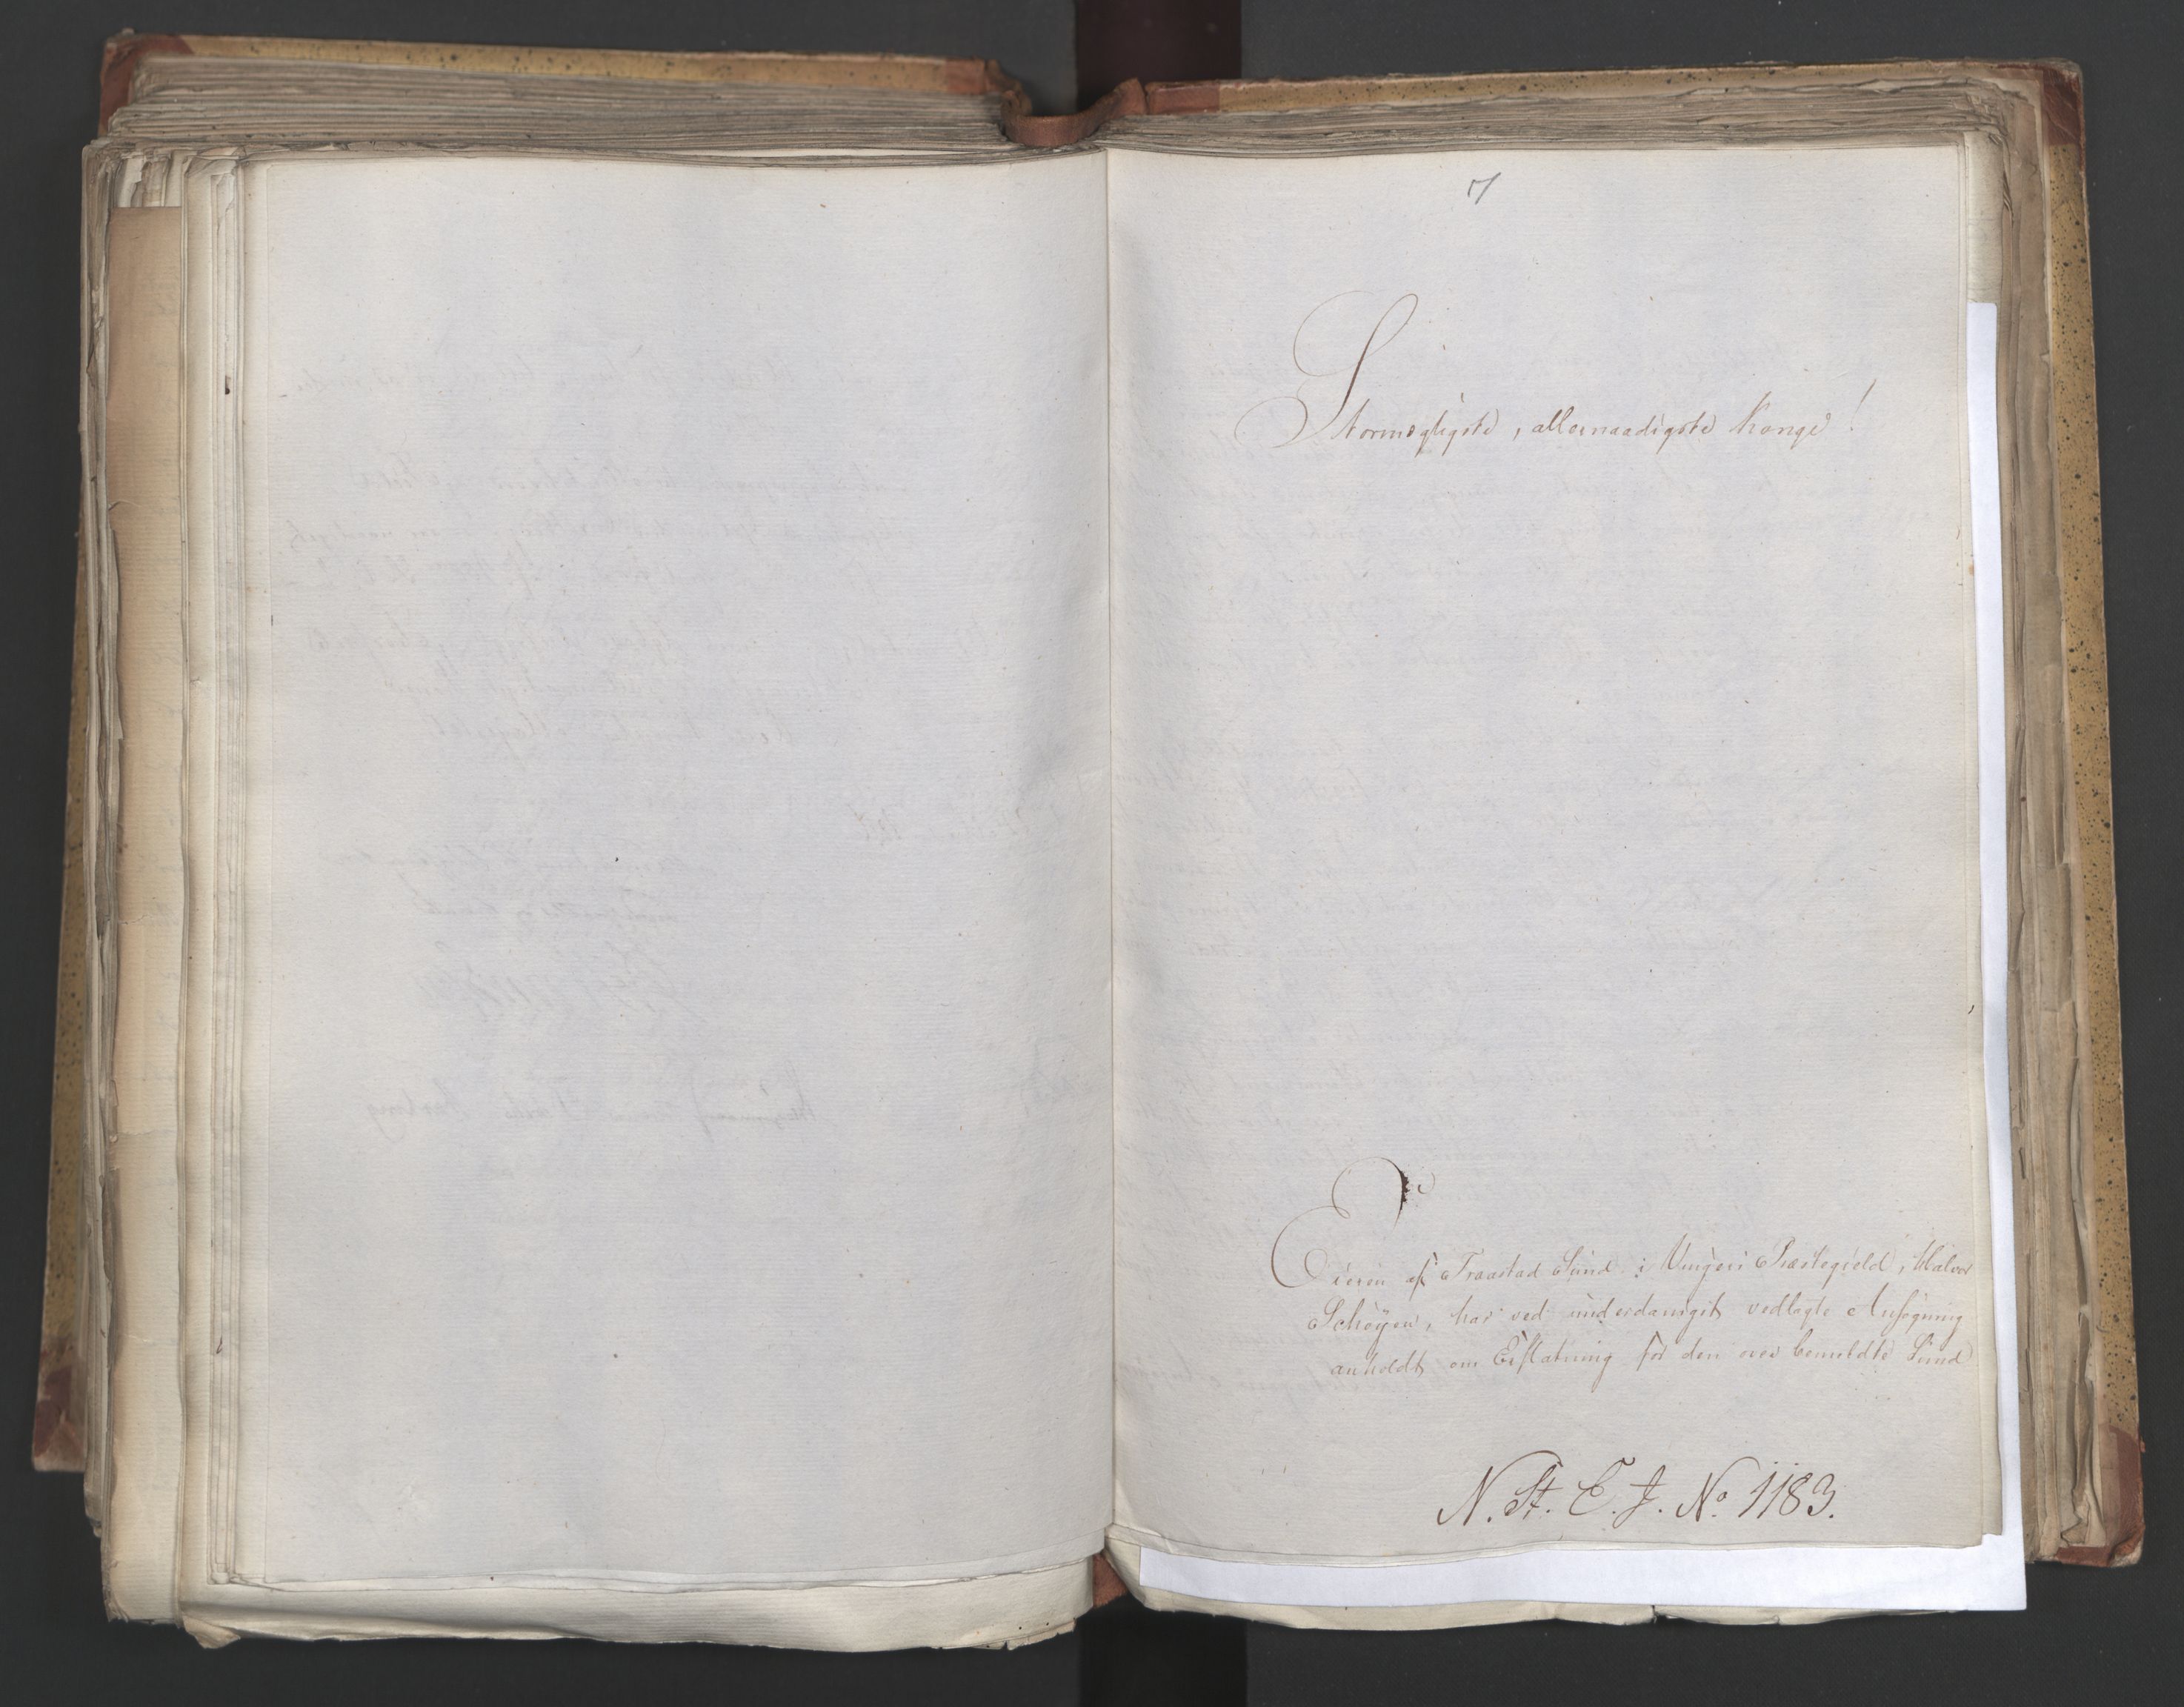 7
Stormægtigste, allernaadigste Konge!
Eieren af Traastad Sund i Vingers Præstegield, Halvor
Schøyen, har ved underdanigst vedlagte Ansøgning
anholdt om Erstatning for den over bemeldte Sund
N. St. C. J. No. 1183.